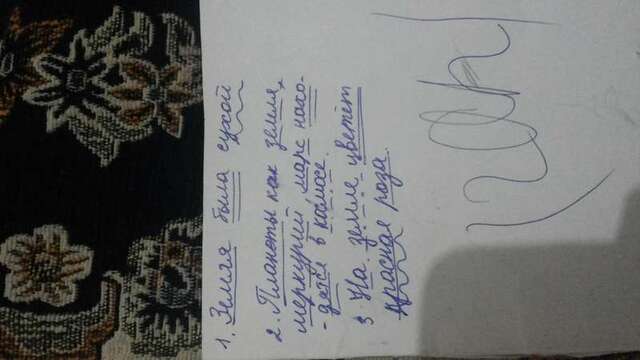 1. Земля была сухой
2. Планеты как земля,
меркурий, марс нахо-
-дятся в космосе.
3 На земле цветёт
красная роза.